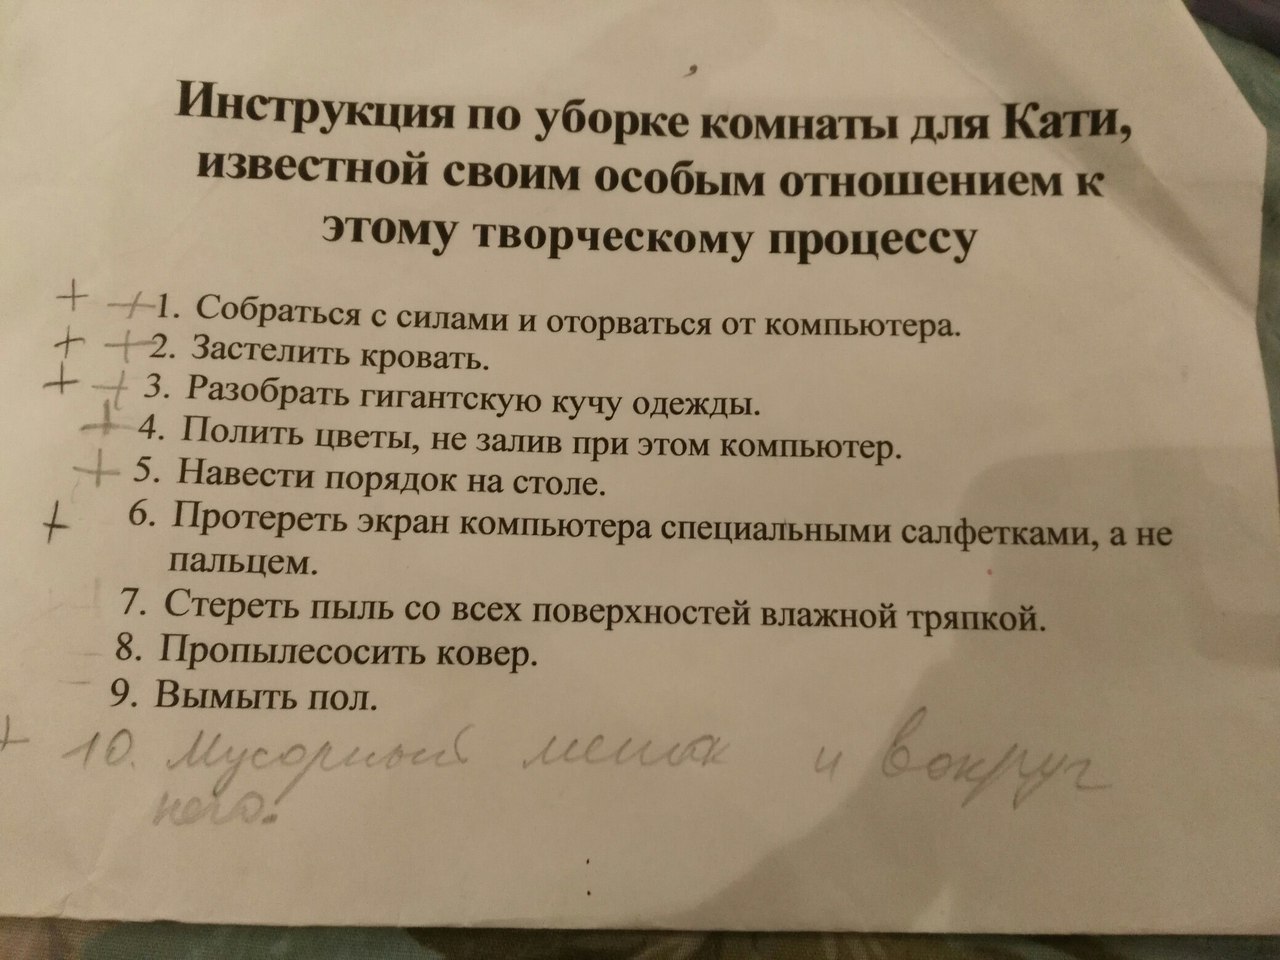 Инструкция по уборке комнаты для Кати,
известной своим особым отношением к
этому творческому процессу
+ + 1. Собраться с силами и оторваться от компьютера.
+ + 2. Застелить кровать.
+ + 3. Разобрать гигантскую кучу одежды.
+ 4. Полить цветы, не залив при этом компьютер.
+ 5. Навести порядок на столе.
+ 6. Протереть экран компьютера специальными салфетками, а не
пальцем.
7. Стереть пыль со всех поверхностей влажной тряпкой.
8. Пропылесосить ковер.
9. Вымыть пол.
+ 10. Мусорный мешок и вокруг
него.